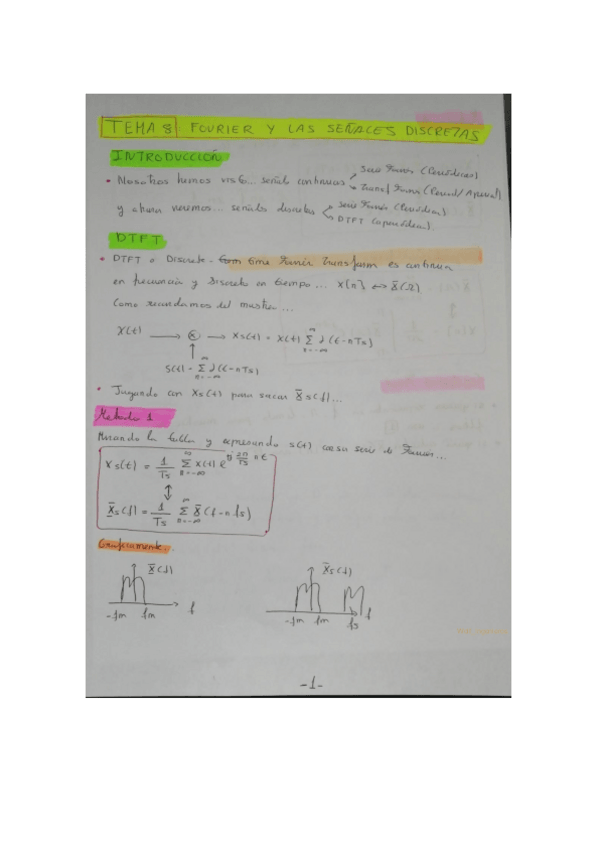 TEMA 8 FOURIER Y LAS SEÑALES DISCRETAS
INTRODUCCIÓN
• Nosotros hemos visto... señales continuas Serie Fourier (Periódicas)
Transf Fourier (Period/Aperiod)
y ahora veremos... señales discretas Serie Fourier (Periódicas)
DTFT (aperiódicas).
DTFT
• DTFT = Discrete - time Fourier Transform es continua
en frecuencia y discreta en tiempo... x[n] ↔ X̄(Ω)
Como recordamos del muestreo...
x(t) → ⊗ → xs(t) = x(t) ∑ n=-∞ ∞ δ(t-nTs)
↑
s(t) = ∑ n=-∞ ∞ δ(t-nTs)
• Jugando con xs(t) para sacar X̄s(f)...
Método 1
Mirando la tabla y expresando s(t) como serie de Fourier...
xs(t) = 1/Ts ∑ n=-∞ ∞ x(t) e^j 2π/Ts nt
↕
X̄s(f) = 1/Ts ∑ n=-∞ ∞ X̄(f-n fs)
Gráficamente..
X̄(f) X̄s(f)
-fm fm f -fm fm fs f
-1-